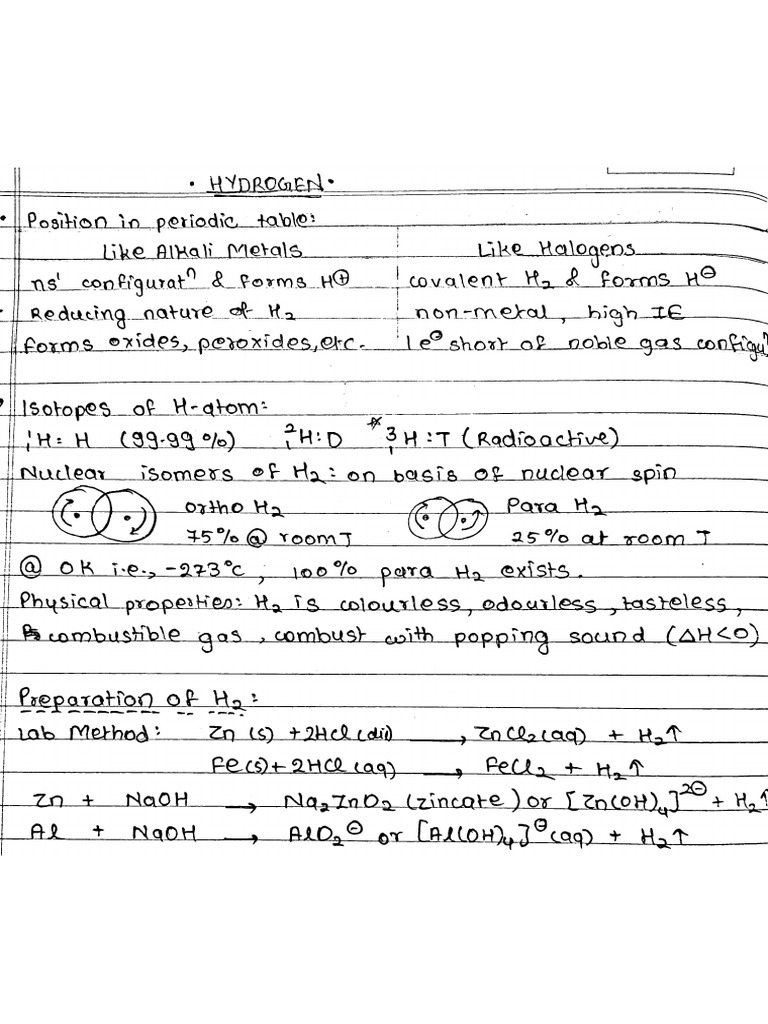 • HYDROGEN •
• Position in periodic table:
Like Alkali Metals Like Halogens
ns¹ configuratⁿ & forms H⊕ covalent H₂ & forms H⊖
Reducing nature of H₂ non-metal, high IE
forms oxides, peroxides, etc. 1e⊖ short of noble gas configuⁿ
Isotopes of H-atom:
¹₁H: H (99.99%) ²₁H: D * ³₁H : T (Radioactive)
Nuclear isomers of H₂: on basis of nuclear spin
ortho H₂ Para H₂
75% @ room T 25% at room T
@ OK i.e., -273°c, 100% para H₂ exists.
Physical properties: H₂ is colourless, odourless, tasteless,
combustible gas, combust with popping sound (ΔH<0)
Preparation of H₂:
Lab Method: Zn (s) + 2HCl (dil) → ZnCl₂ (aq) + H₂↑
Fe(s) + 2HCl (aq) → FeCl₂ + H₂↑
Zn + NaOH → Na₂ZnO₂ (zincate) or [Zn(OH)₄]²⊖ + H₂↑
Al + NaOH → AlO₂⊖ or [Al(OH)₄]⊖ (aq) + H₂↑